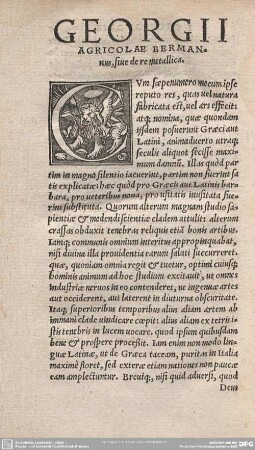 GEORGII
AGRICOLAE BERMAN-
nus, siue de re metallica.
CVm sæpenumero mecum ipse
reputo res, quas uel natura
fabricata est, uel ars effecit:
atq; nomina, quæ quondam
ijsdem posuerunt Græci aut
Latini, animaduerto utraq;
seculis aliquot fecisse maxi
mum damnũ. Illas quòd par
tim in magno silentio iacuerint, partim non fuerint sa
tis explicatæ: hæc quòd pro Græcis aut Latinis bar
bara, pro ueteribus noua, pro usitatis inusitata fue
rint substituta. Quorum alterum magnam studio sa-
pientiæ & medendi scientiæ cladem attulit: alterum
crassas obduxit tenebras reliquis etiã bonis artibus.
Iamq; communis omnium interitus appropinquabat,
nisi diuina illa prouidentia earum saluti succurreret.
quæ, quoniam omnia regit & tuetur, optimi cuiusq;
hominis animum ad hoc studium excitauit, ut omnes
industriæ neruos in eo contenderet, ne ingenuæ artes
aut occiderent, aut laterent in diuturna obscuritate.
Itaq; superioribus temporibus alius aliam artem ab
immani clade uindicare cœpit: alius aliam ex tetris i-
stis tenebris in lucem uocare. quod ipsum quibusdam
bene & prospere processit. Iam enim non modo lin
guæ Latinæ, ut de Græca taceam, puritas in Italia
maximè floret, sed exteræ etiam nationes non paucæ
eam amplectuntur. Breuiq;, nisi quid aduersi, quod
Deus